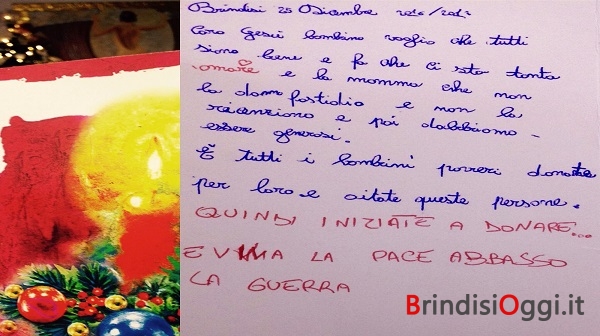 Brindisi 25 Dicembre 2016/2017
Caro Gesù bambino voglio che tutti
siano bene e fa che ci sta tanta
amore e la mamma che non
la diano fastidio e non la
e poi dobbiamo -
essere generosi.
E tutti i bambini poveri donate
per loro e aitate queste persone.
QUINDI INIZIATE A DONARE...
E VIVA LA PACE ABBASSO
LA GUERRA
BrindisiOggi.it